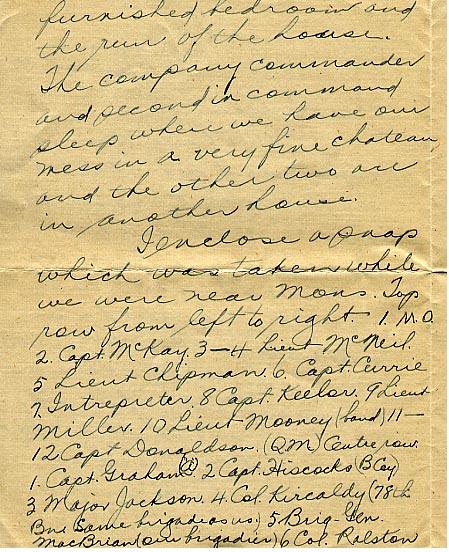 furnished bedroom and
the run of the house.
The company commander
and second in command
sleep where we have our
mess in a very fine chateau
and the other two are
in another house.
I enclose a snap
which was taken while
we were near Mons. Top
row from left to right. 1. M.O.
2. Capt. McKay. 3 — 4 Lieut McNeil.
5 Lieut Chipman. 6. Capt. Currie
7. Intrepreter. 8 Capt. Keeler. 9 Lieut
Miller. 10 Lieut Mooney (band) 11 —
12 Capt Donaldson. (Q.M.) Centre row.
1. Capt. Graham 2 Capt. Hiscocks (B Coy)
3 Major Jackson. 4. Col. Kircaldy (78th
Bn. (Same brigade as us.) 5. Brig-Gen.
MacBrian (our brigadier) 6 Col. Ralston